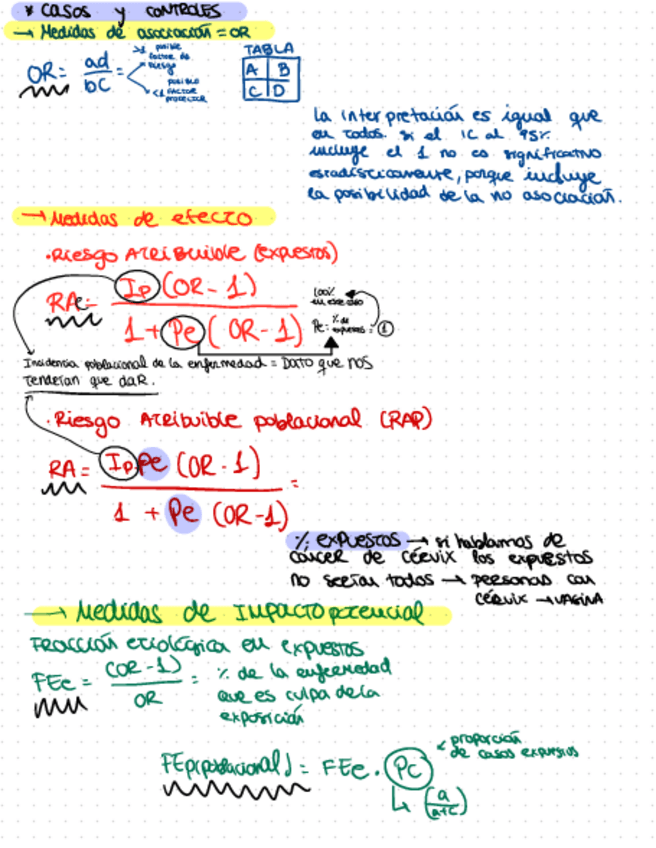 * CASOS y CONTROLES
→ Medidas de asociación = OR
OR = ad / bc =
>1 posible factor de riesgo
<1 posible FACTOR PROTECTOR
TABLA
A B
C D
La interpretación es igual que
en todos. si el IC al 95%
incluye el 1 no es significativo
estadísticamente, porque incluye
la posibilidad de la no asociación.
→ Medidas de efecto
· Riesgo Atribuible (expuestos)
RAe = Ip (OR - 1) / 1 + Pe (OR - 1)
100% en este caso
Pe = % de expuestos = 1
Incidencia poblacional de la enfermedad = DATO que nos
tendrían que daR.
· Riesgo Atribuible poblacional (RAP)
RA = Ip Pe (OR - 1) / 1 + Pe (OR - 1) =
% EXPUESTOS → si hablamos de
cáncer de cérvix los expuestos
no serían todos → personas con
cérvix → VAGINA
→ Medidas de IMPACTO potencial
Fracción etiológica en expuestos
FEe = (OR - 1) / OR = % de la enfermedad
que es culpa de la
exposición
FEp (poblacional) = FEe · Pc
proporción
de casos expuestos
(a / a+c)